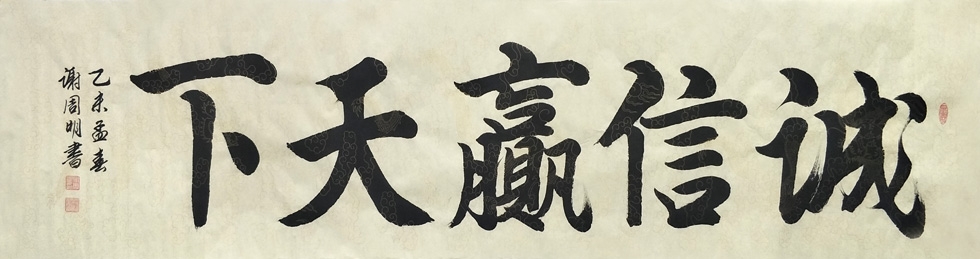 诚信赢天下
乙未孟春
谢周明書